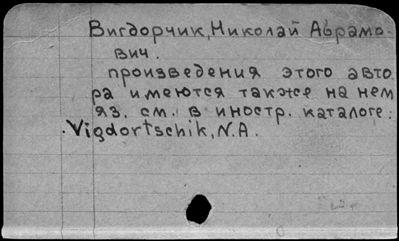 Вигдорчик, Николай Абрамо-
вич.
произведения этого авто
ра имеются также на нем
яз. см. в иностр. каталоге:
Vigdortschik, N.A.